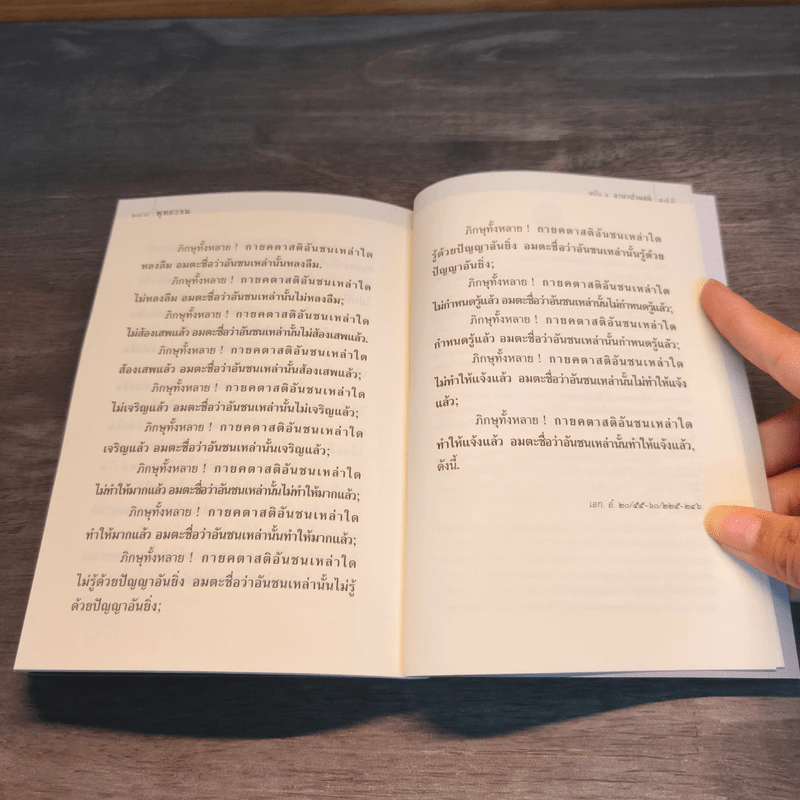 พุทธวจน
ภิกษุทั้งหลาย ! กายคตาสติอันชนเหล่าใด
หลงลืม อมตะชื่อว่าอันชนเหล่านั้นหลงลืม.
ภิกษุทั้งหลาย ! กายคตาสติอันชนเหล่าใด
ไม่หลงลืม อมตะชื่อว่าอันชนเหล่านั้นไม่หลงลืม;
ภิกษุทั้งหลาย ! กายคตาสติอันชนเหล่าใด
ไม่ส้องเสพแล้ว อมตะชื่อว่าอันชนเหล่านั้นไม่ส้องเสพแล้ว.
ภิกษุทั้งหลาย ! กายคตาสติอันชนเหล่าใด
ส้องเสพแล้ว อมตะชื่อว่าอันชนเหล่านั้นส้องเสพแล้ว;
ภิกษุทั้งหลาย ! กายคตาสติอันชนเหล่าใด
ไม่เจริญแล้ว อมตะชื่อว่าอันชนเหล่านั้นไม่เจริญแล้ว;
ภิกษุทั้งหลาย ! กายคตาสติอันชนเหล่าใด
เจริญแล้ว อมตะชื่อว่าอันชนเหล่านั้นเจริญแล้ว;
ภิกษุทั้งหลาย ! กายคตาสติอันชนเหล่าใด
ไม่ทำให้มากแล้ว อมตะชื่อว่าอันชนเหล่านั้นไม่ทำให้มากแล้ว;
ภิกษุทั้งหลาย ! กายคตาสติอันชนเหล่าใด
ทำให้มากแล้ว อมตะชื่อว่าอันชนเหล่านั้นทำให้มากแล้ว;
ภิกษุทั้งหลาย ! กายคตาสติอันชนเหล่าใด
ไม่รู้ด้วยปัญญาอันยิ่ง อมตะชื่อว่าอันชนเหล่านั้นไม่รู้
ด้วยปัญญาอันยิ่ง;
ฉบับ ๖ อานาปานสติ
ภิกษุทั้งหลาย ! กายคตาสติอันชนเหล่าใด
รู้ด้วยปัญญาอันยิ่ง อมตะชื่อว่าอันชนเหล่านั้นรู้ด้วย
ปัญญาอันยิ่ง;
ภิกษุทั้งหลาย ! กายคตาสติอันชนเหล่าใด
ไม่กำหนดรู้แล้ว อมตะชื่อว่าอันชนเหล่านั้นไม่กำหนดรู้แล้ว;
ภิกษุทั้งหลาย ! กายคตาสติอันชนเหล่าใด
กำหนดรู้แล้ว อมตะชื่อว่าอันชนเหล่านั้นกำหนดรู้แล้ว;
ภิกษุทั้งหลาย ! กายคตาสติอันชนเหล่าใด
ไม่ทำให้แจ้งแล้ว อมตะชื่อว่าอันชนเหล่านั้นไม่ทำให้แจ้ง
แล้ว;
ภิกษุทั้งหลาย ! กายคตาสติอันชนเหล่าใด
ทำให้แจ้งแล้ว อมตะชื่อว่าอันชนเหล่านั้นทำให้แจ้งแล้ว,
ดังนี้.
เอก. อํ. ๒๐/๕๙-๖๐/๒๒๕-๒๔๖.